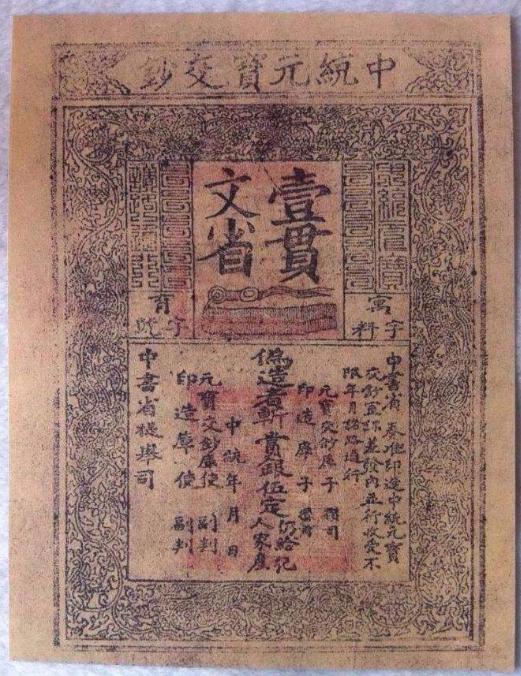 中統元寶交鈔
壹貫
文省
字料
字號
中書省 奏准印造中統元寶
交鈔宣課差發內並行收受不
限年月諸路通行
元寶交鈔庫子 攢司
印造庫子 攢司
偽造者斬 賞銀伍定 仍給犯
人家產
中統 年 月 日
元寶交鈔庫使 副判
印造庫使 副判
中書省提舉司